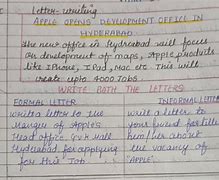 Letter-writing
APPLE OPENS DEVELOPMENT OFFICE IN
HYDERABAD
The new office in Hydrabad will focus
on development of maps, Apple products
like Iphone, IPad, Mac etc. This will
create upto 4000 Jobs
WRITE BOTH THE LETTERS
FORMAL LETTER
write a letter to the
Manger of Apple's
Head office, Hyderabad for applying
for this Job
INFORMAL LETTER
Write a letter to
your friend
him/her about
the vacancy of
"APPLE".